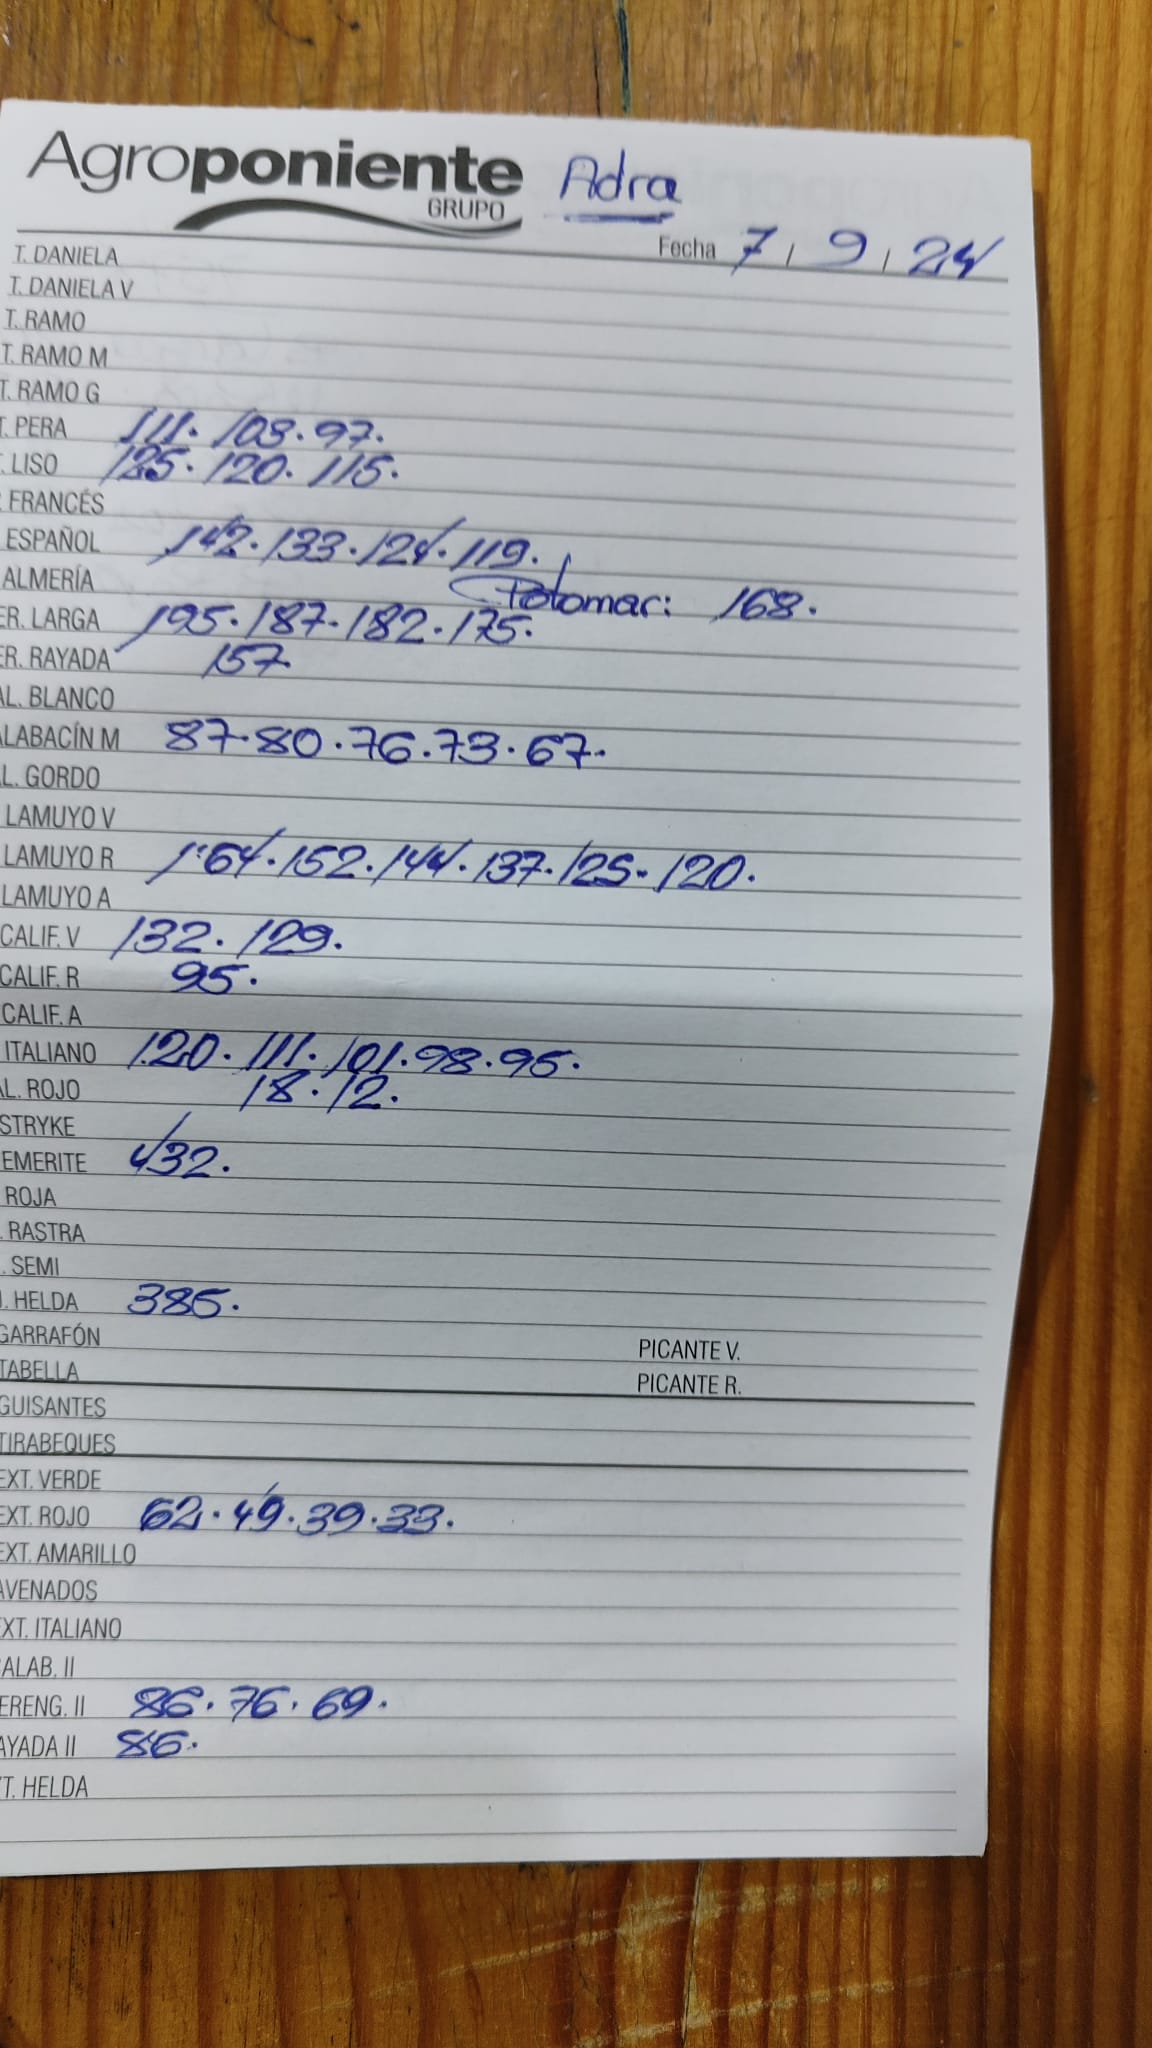 Agroponiente Adra
GRUPO
Fecha 7 / 9 / 24
T. DANIELA
T. DANIELA V
T. RAMO
T. RAMO M
T. RAMO G
T. PERA 111. 103. 97.
. LISO 125. 120. 115.
. FRANCÉS
ESPAÑOL 142. 133. 124. 119.
ALMERÍA Potomar: 168.
ER. LARGA 195. 187. 182. 175.
ER. RAYADA 157.
AL. BLANCO
ALABACÍN M 87. 80. 76. 73. 67.
AL. GORDO
LAMUYO V
LAMUYO R 1'64. 152. 144. 137. 125. 120.
LAMUYO A
CALIF. V 132. 129.
CALIF. R 95.
CALIF. A
ITALIANO 120. 111. 101. 98. 95.
AL. ROJO 18. 12.
STRYKE
EMERITE 432.
ROJA
. RASTRA
. SEMI
. HELDA 385.
GARRAFÓN PICANTE V.
TABELLA PICANTE R.
GUISANTES
TIRABEQUES
EXT. VERDE
EXT. ROJO 62. 49. 39. 33.
EXT. AMARILLO
AVENADOS
EXT. ITALIANO
CALAB. II
ERENG. II 86. 76. 69.
AYADA II 86.
XT. HELDA